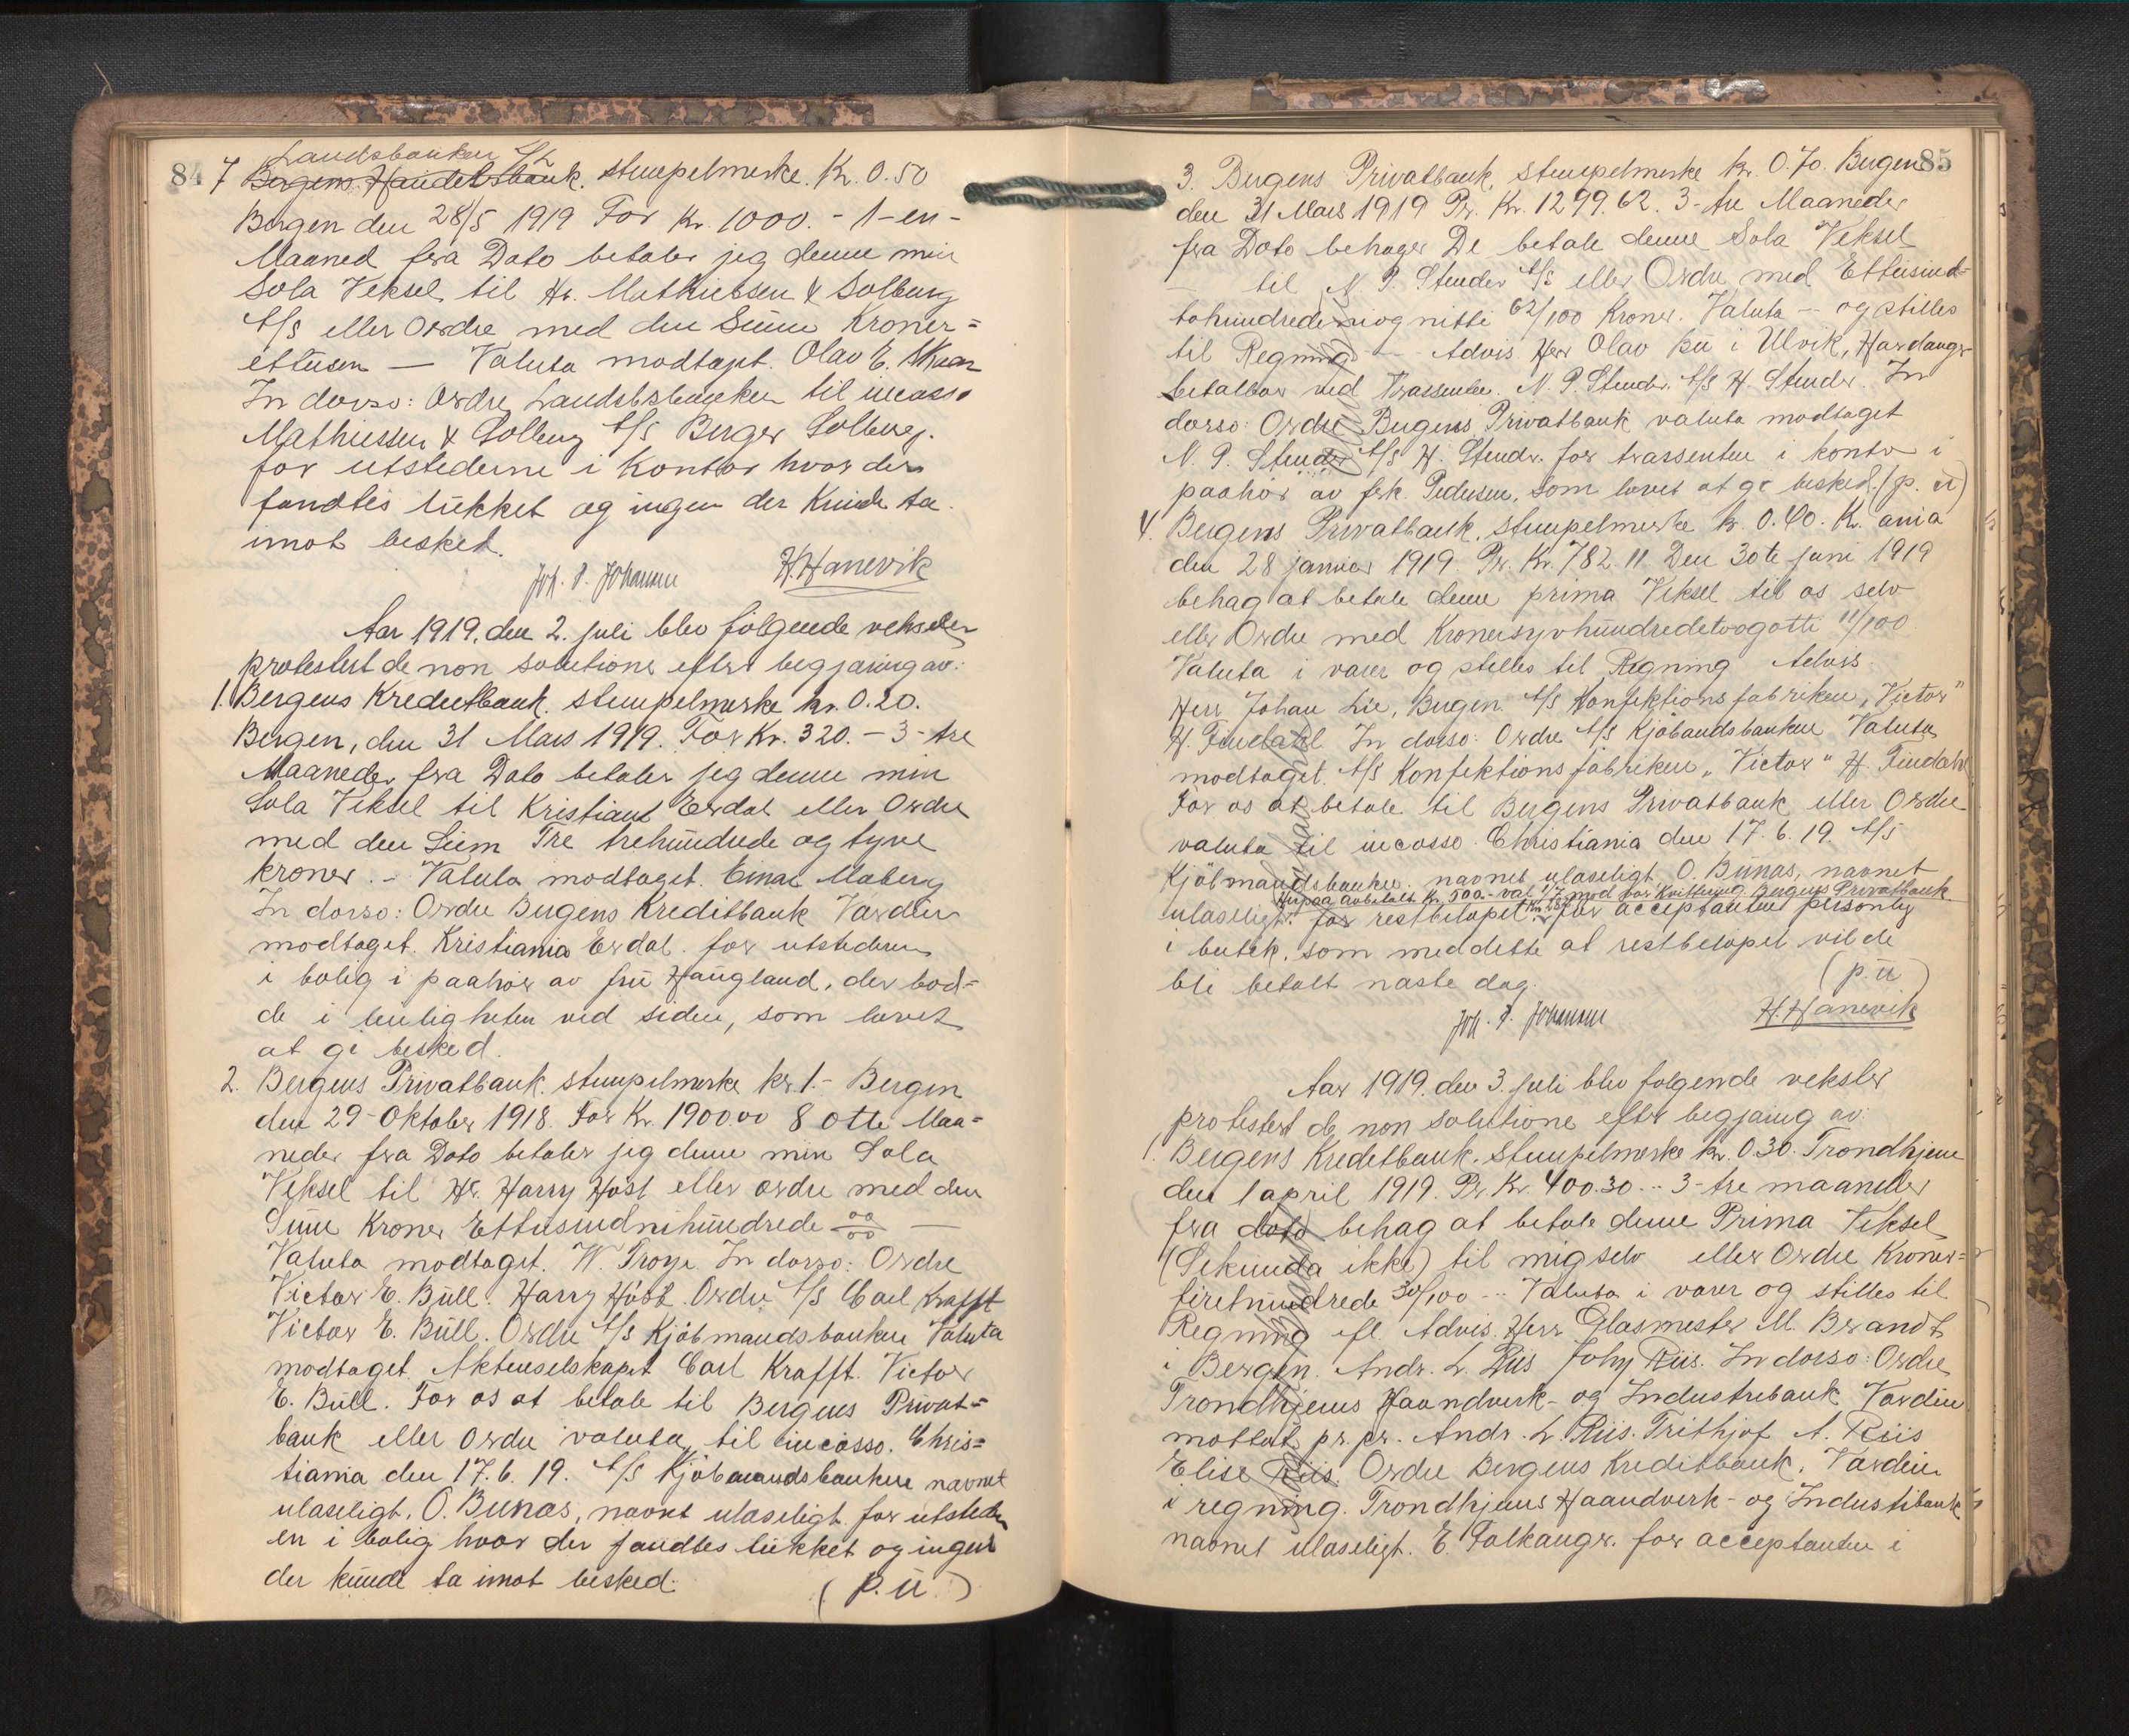 84
Landsbanken A/S
7 Bergens Handelsbank. stempelmerke. Kr. 0.50
Bergen den 28/5 1919 For Kr. 1000. - 1 - en -
Maaned fra Dato betaler jeg denne min
Sola Veksel til Hr. Mathiesen & Solberg
A/S eller Ordre med den Summ Kroner =
ettusen — Valuta modtagt. Olav E.
In dorso: Ordre Landsbanken til incasso
Mathiesen & Solberg A/S Berger Solberg.
for utstederne i Kontor hvor der
fandtes lukket og ingen der Kunde ta
imot besked.
Joh. P. Johannu H. Hanevik
Aar 1919. den 2. juli blev følgende veksler
protestert de non solutione efter begjæring av:
1. Bergens Kreditbank. stempelmerke kr. 0.20.
Bergen, den 31 Mars 1919. For Kr. 320. - 3 - tre
Maaneder fra Dato betaler jeg denne min
Sola Veksel til Kristians Erdal eller Ordre
med den Sum Tre trehundrede og tyve
kroner. - Valuta modtaget. Einar Maberg
In dorso: Ordre Bergens Kreditbank Værdien
modtaget. Kristiania Erdal. for utstederen
i bolig i paahør av fru Haugland, der bod=
de i leiligheten ved siden, som lovet
at gi besked.
2. Bergens Privatbank. stempelmerke kr. 1. - Bergen
den 29 - Oktober 1918. For Kr. 1900.00 8 otte Maa=
neder fra Dato betaler jeg denne min Sola
Veksel til Hr. Harry Høst eller ordre med den
Sum Kroner Ettusindnihundrede 00/00 —
Valuta modtaget. W. Troye. In dorso: Ordre
Victor E. Büll. Harry Høst. Ordre A/S Carl Krafft
Victor E. Büll. Ordre A/S Kjøbmandsbanken Valuta
modtaget. Aktieselskapet Carl Krafft. Victor
E. Büll. For os at betale til Bergens Privat=
bank eller Ordre valuta til incasso. Chris=
tiania den 17. 6. 19. A/S Kjøbmandsbanken navnet
ulæseligt, O. Bunæs, navnet ulæseligt. for utsteder
en i bolig hvor der fandtes lukket og ingen
der kunde ta imot besked. (p. u.)
85
3. Bergens Privatbank, stempelmerke kr. 0.70. Bergen
den 31 Mars 1919 Pr. Kr. 1299.62. 3 - tre Maaneder
fra Dato behager De betale denne Sola Veksel
— til N. P. Stender A/S eller Ordre med Ettusind-
tohundrede niognitti 62/100 Kroner. Valuta — og stilles
til Regning — Advis. Herr Olav Bu i Ulvik, Hardanger
betalbar ved Trassenten. N. P. Stender. A/S H. Stender. In
dorso: Ordre Bergens Privatbank valuta modtaget
N. P. Stender A/S H. Stender. for trassenten i kontor i
paahør av frk. Pedersen, som lovet at gi besked. (p. u)
4. Bergens Privatbank. stempelmerke kr. 0.40. K. ania
den 28 januar 1919. Pr. Kr. 782.11 Den 30te juni 1919
behag at betale denne prima Veksel til os selv
eller Ordre med Kronersyvhundredetoogotti 11/100
Valuta i varer og stilles til Regning Advis.
Herr Johan Lie, Bergen. A/S Konfektionsfabriken „Victor"
H. Findahl In dorso: Ordre A/S Kjøbmandsbanken Valuta
modtaget. A/S Konfektionsfabriken „Victor" H. Findahl
For os at betale til Bergens Privatbank eller Ordre
valuta til incasso. Christiania den 17. 6. 19. A/S
Kjøbmandsbanken. navnet ulæseligt, O. Bunæs, navnet
Herpaa avbetalt Kr. 500.- val. 1/7 mod vor Kvittering. Bergens Privatbank.
ulæseligt. for restbeløpet for acceptanten personlig
i butik, som meddelte at restbeløpet vilde
bli betalt næste dag. (p. u.)
Joh. P. Johannu H. Hanevik
Aar 1919. den 3. juli blev følgende veksler
protestert de non solutione efter begjæring av:
1. Bergens Kreditbank. stempelmerke kr. 0.30. Trondhjem
den 1 april 1919. Pr. Kr. 400.30 -- 3 - tre maaneder
fra dato behag at betale denne Prima Veksel
(Sekunda ikke) til mig selv eller Ordre Kroner=
firehundrede 30/100 -- Valuta i varer og stilles til
Regning efl. Advis. Herr Glasmester M. Brandt
i Bergen. Andr. L. Riis Johy Riis. In dorso: Ordre
Trondhjems Haandverk- og Industribank Værdien
mottat pr. pr. Andr. L. Riis. Frithjof A. Riis
Elise Riis. Ordre Bergens Kreditbank. Værdien
i regning. Trondhjems Haandverk- og Industibank
navnet ulæseligt. E. Falkanger. for acceptanten i